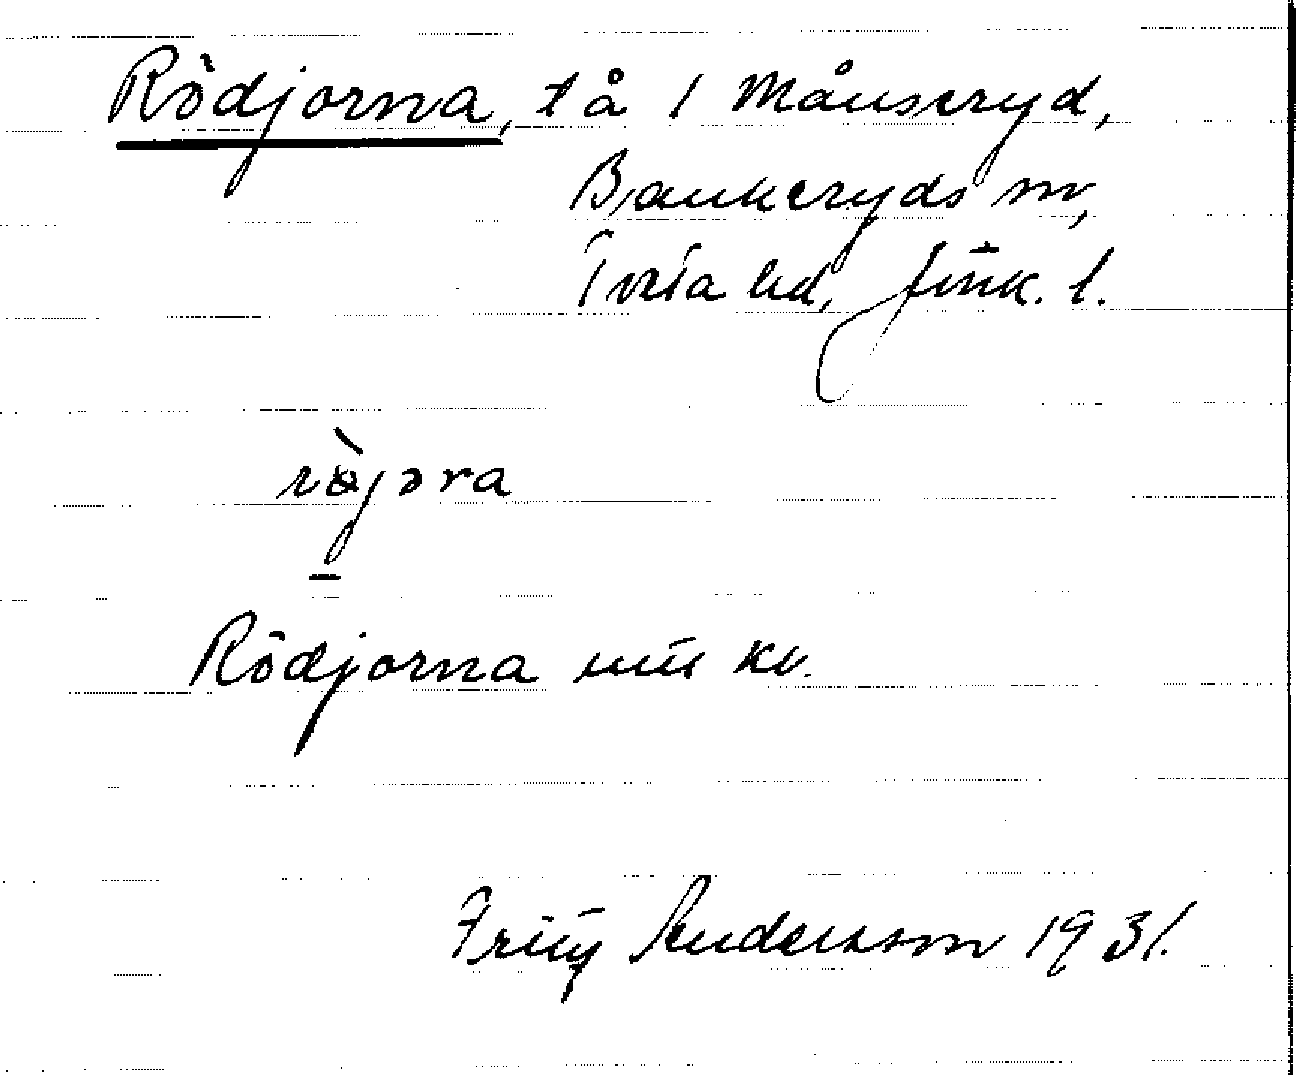 Rödjorna, tå i Månseryd,
Bankeryds sn,
Tveta hd, Jönk. l.
rö̀jəra
Rödjorna mtk kv.
Fritz Anderson 1931.